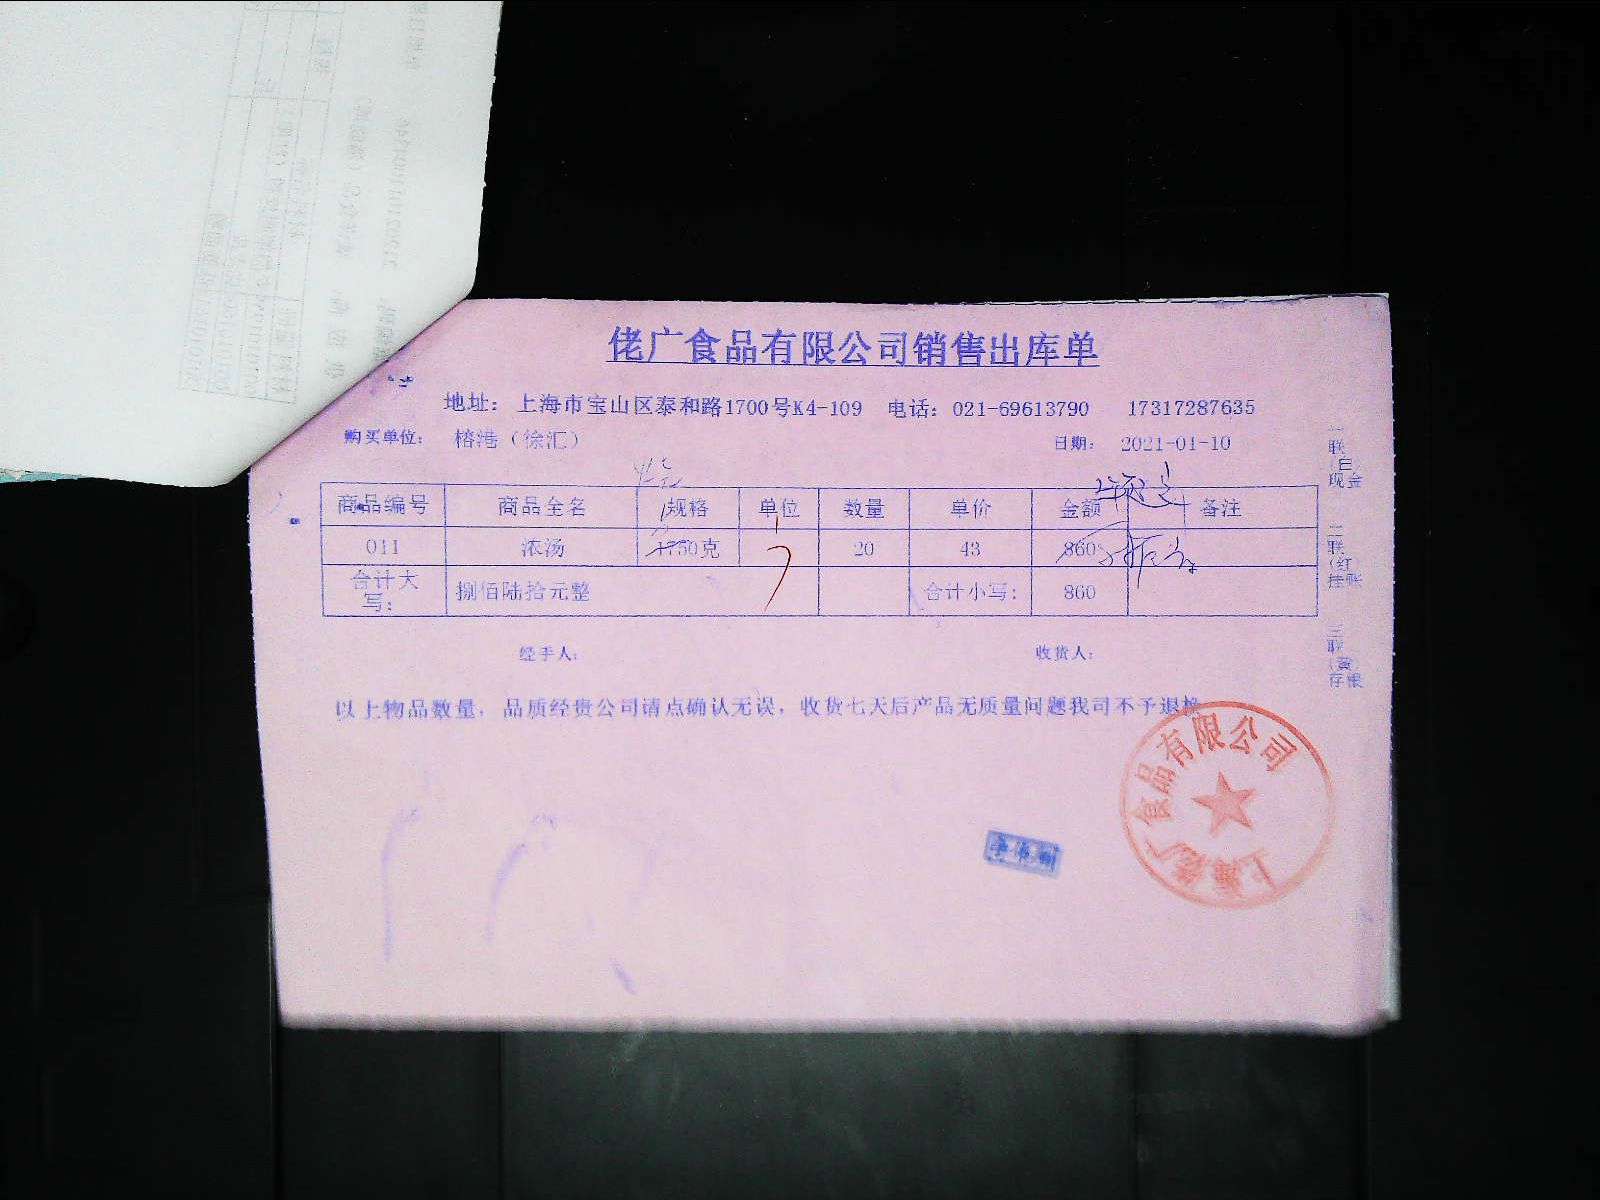 佬广食品有限公司销售出库单
地址：上海市宝山区泰和路1700号K4-109 电话：021-69613790 17317287635
购买单位： 榕港（徐汇） 日期： 2021-01-10
商品编号 商品全名 规格 单位 数量 单价 金额 备注
011 浓汤 1750克 20 43 860
合计大写： 捌佰陆拾元整 合计小写： 860
经手人： 收货人：
以上物品数量，品质经贵公司请点确认无误，收货七天后产品无质量问题我司不予退换
一联（白）现金
二联（红）挂账
三联（黄）存根
上海佬广食品有限公司